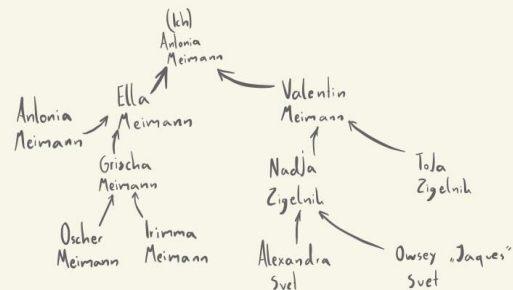 (Ich)
Antonia
Meimann
Ella
Meimann
Valentin
Meimann
Antonia
Meimann
Grischa
Meimann
Nadja
Zigelnik
Tola
Zigelnik
Oscher
Meimann
Irimma
Meimann
Alexandra
Svet
Owsey „Jaques"
Svet